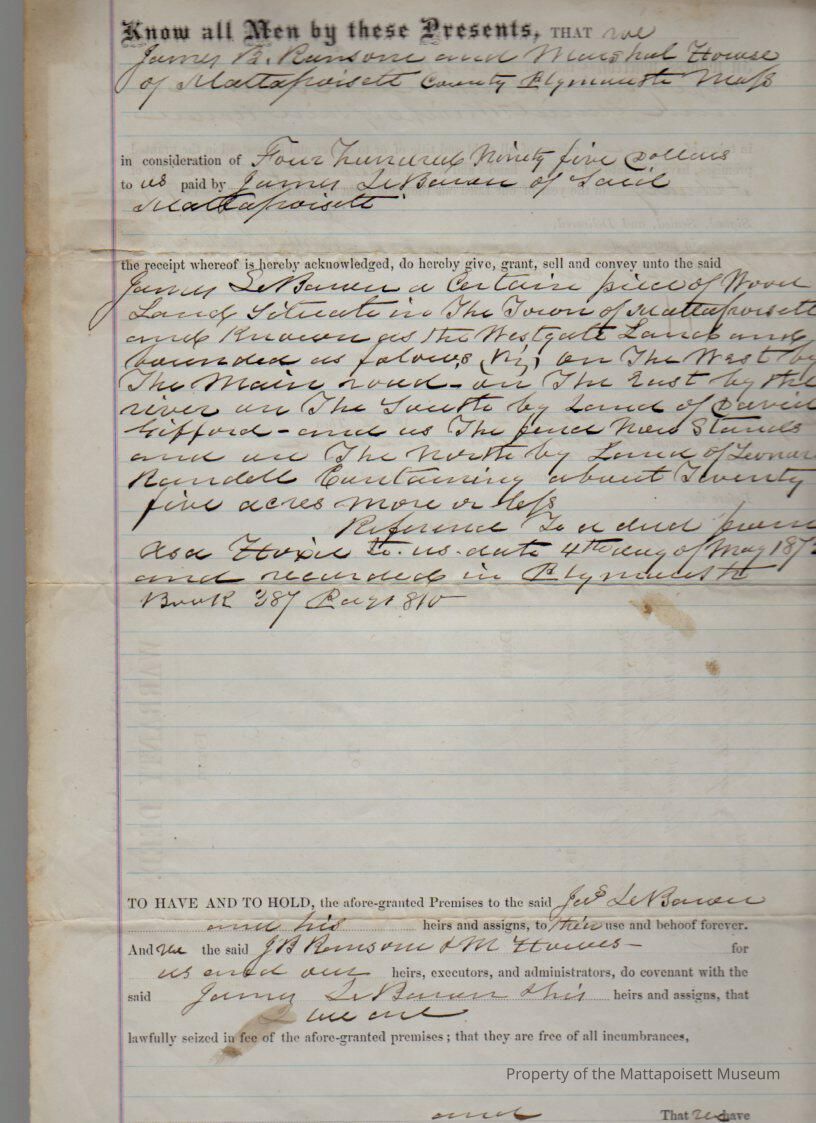 Know all Men by these Presents, THAT we
James B. Ransom and Marshal Howse
of Mattapoisett County Plymouth Mass
in consideration of Four hundred Ninety five Dollars
to us paid by James LeBaron of Said
Mattapoisett
the receipt whereof is hereby acknowledged, do hereby give, grant, sell and convey unto the said
James LeBaron a Certain piece of Wood
Land Situate in The Town of Mattapoisett
and Known as the Westgate Land and
bounded as folows, Viz, on The West by
The Main road - on The East by the
river on The South by Land of David
Gifford - and as The fence Now Stands
and on The North by Land of
Randell Containing about Twenty
five acres more or less
Reference To a deed from
Asa Hoxie to us date 4th day of May 187
and recorded in Plymouth
Book 387 Page
TO HAVE AND TO HOLD, the afore-granted Premises to the said Jas LeBaron
and his heirs and assigns, to their use and behoof forever.
And we the said J B Ransom & M Howes - for
us and our heirs, executors, and administrators, do covenant with the
said James LeBaron & his heirs and assigns, that
we are
lawfully seized in fee of the afore-granted premises; that they are free of all incumbrances,
Property of the Mattapoisett Museum
and That we have